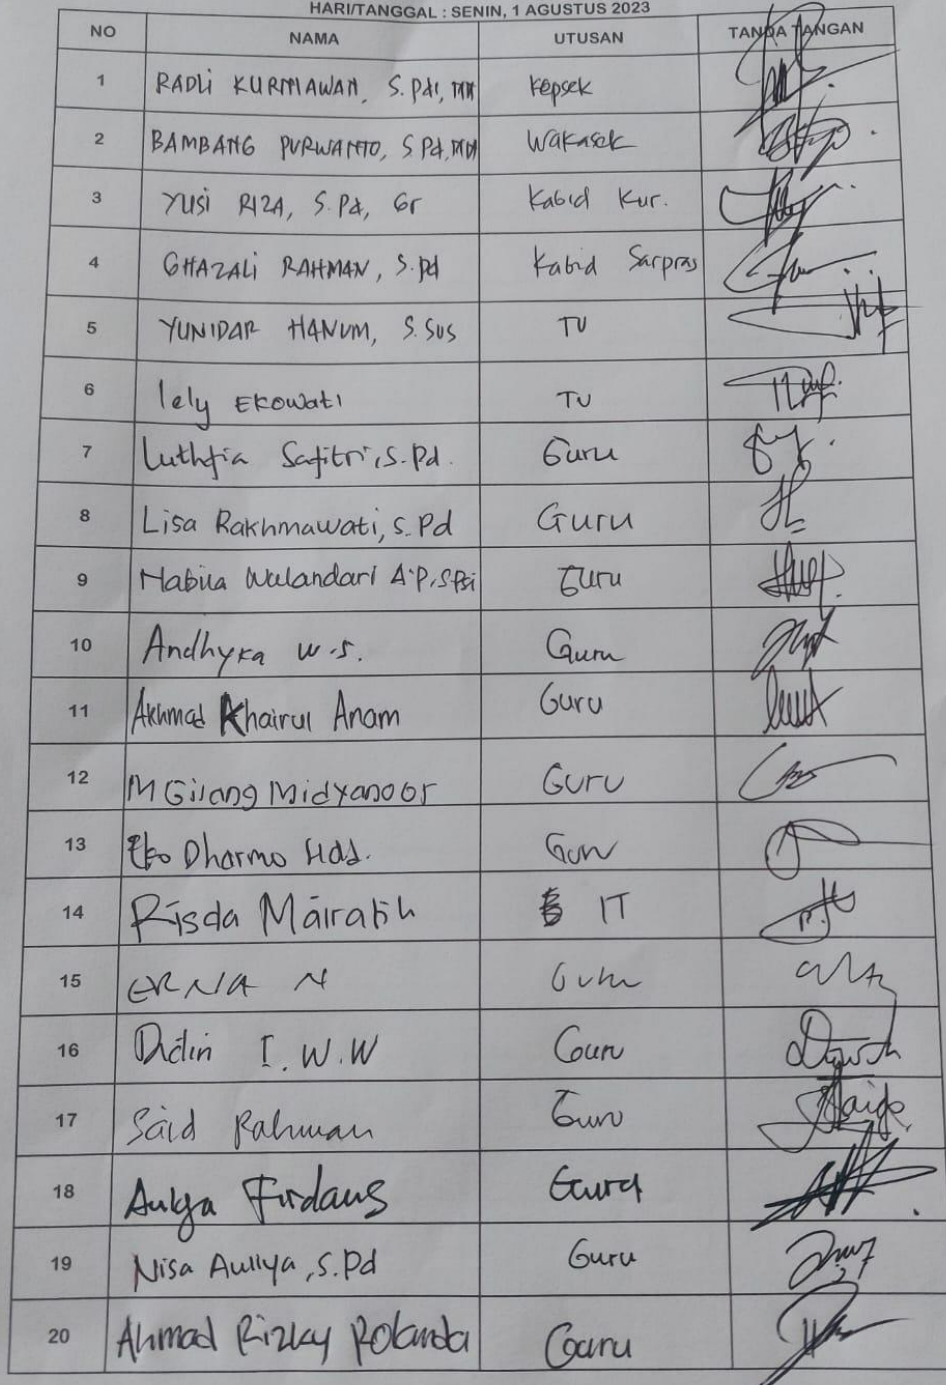 HARI/TANGGAL : SENIN, 1 AGUSTUS 2023
NO NAMA UTUSAN TANDA TANGAN
1 RADLI KURNIAWAN, S.PdI, MM Kepsek
2 BAMBANG PURWANTO, S.Pd, MM Wakasek
3 YUSI RIZA, S.Pd, Gr Kabid Kur.
4 GHAZALI RAHMAN, S.Pd Kabid Sarpras
5 YUNIDAR HANUM, S.Sos TU
6 lely Ekowati TU
7 Luthfia Safitri, S.Pd. Guru
8 Lisa Rakhmawati, S.Pd Guru
9 Nabila Wulandari A.P, S.Psi Guru
10 Andhyka W.S. Guru
11 Akhmad Khairul Anam Guru
12 M Gilang Midyanoor Guru
13 Eko Dharmo Guru
14 Risda Mairatih IT
15 ERNA N Guru
16 Didin I.W.W Guru
17 Said Rahman Guru
18 Aulya Firdaus Guru
19 Nisa Auliya, S.Pd Guru
20 Ahmad Rizky Rolanda Guru